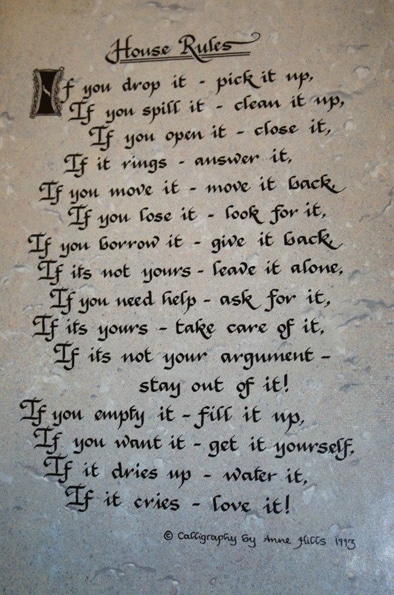 House Rules
If you drop it - pick it up,
If you spill it - clean it up,
If you open it - close it,
If it rings - answer it,
If you move it - move it back,
If you lose it - look for it,
If you borrow it - give it back,
If its not yours - leave it alone,
If you need help - ask for it,
If its yours - take care of it,
If its not your argument -
stay out of it!
If you empty it - fill it up,
If you want it - get it yourself,
If it dries up - water it,
If it cries - love it!
© Calligraphy by Anne Hills 1993